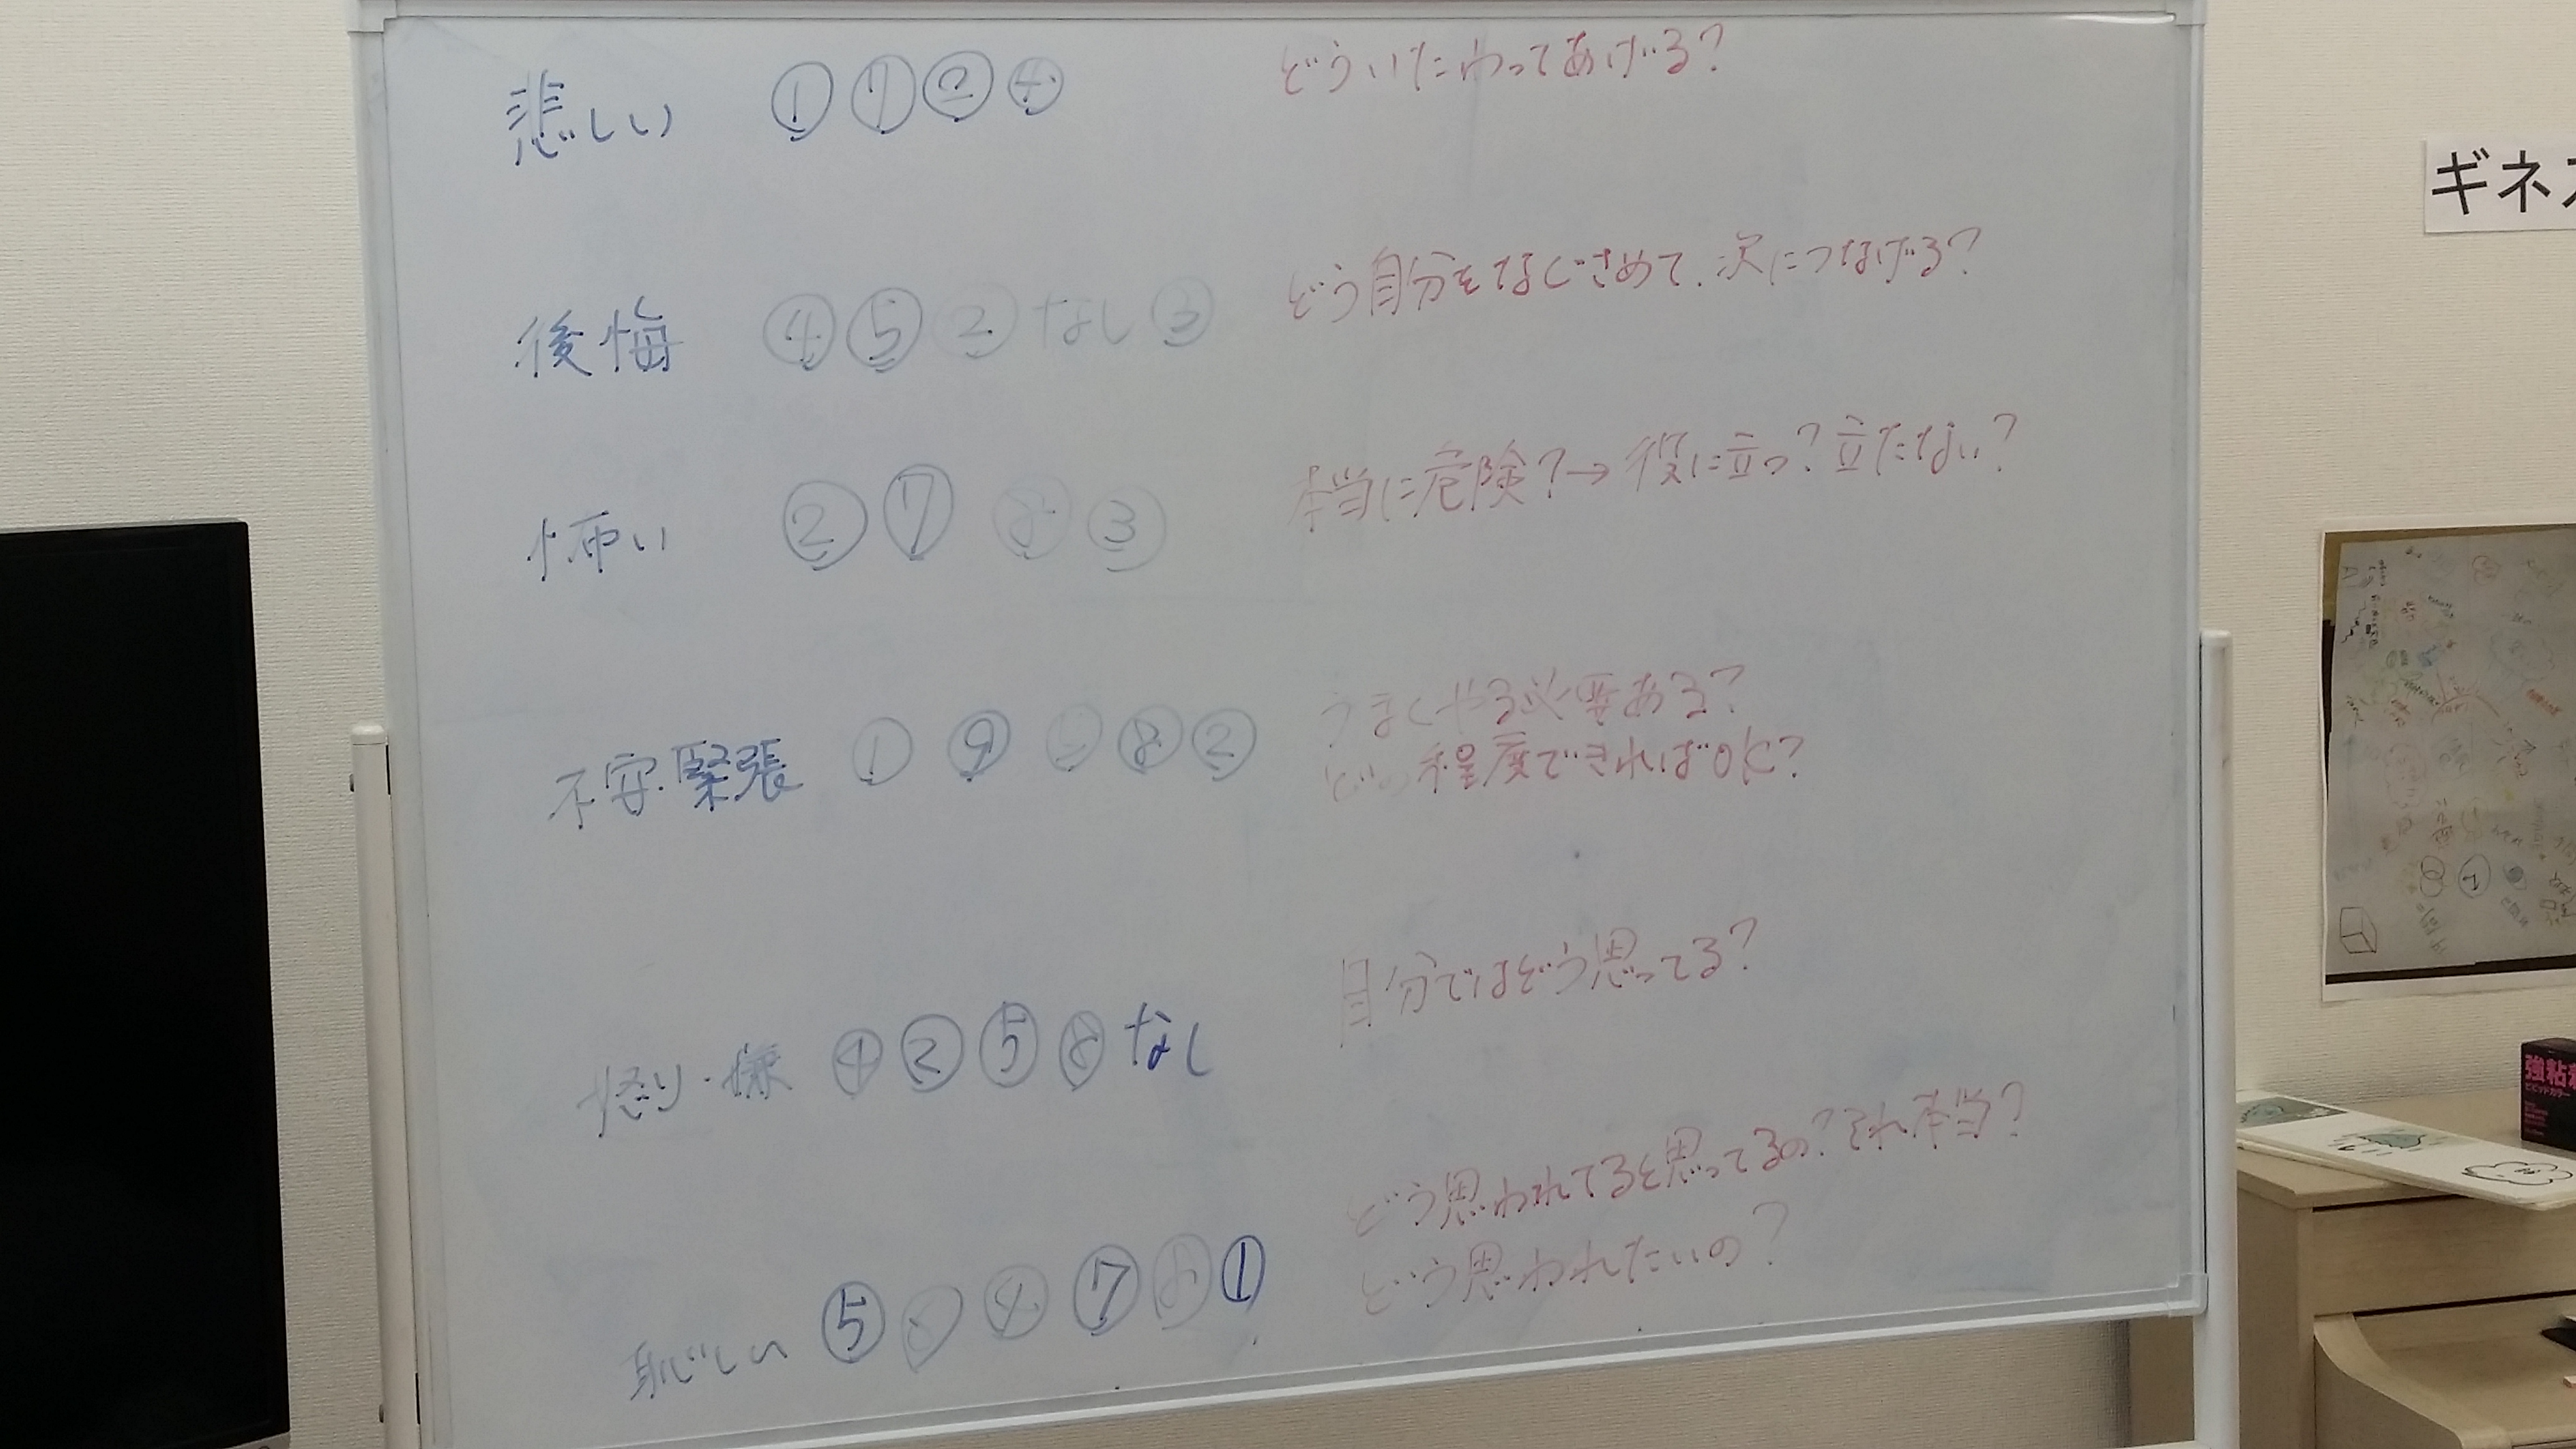 悲しい ① ⑦ ② ④ どういたわってあげる?
後悔 ④ ⑤ ② なし ③ どう自分をなぐさめて、次につなげる?
怖い ② ⑦ ⑧ ③ 本当に危険?→役に立つ?立たない?
不安・緊張 ① ⑨ ⑧ ② うまくやる必要ある?
どの程度できればOK?
怒り・嫌 ④ ② ⑤ ⑧ なし 自分ではどう思ってる?
恥しい ⑤ ⑦ ① どう思われてると思ってるの?それ本当?
どう思われたいの?
ギネ
強粘